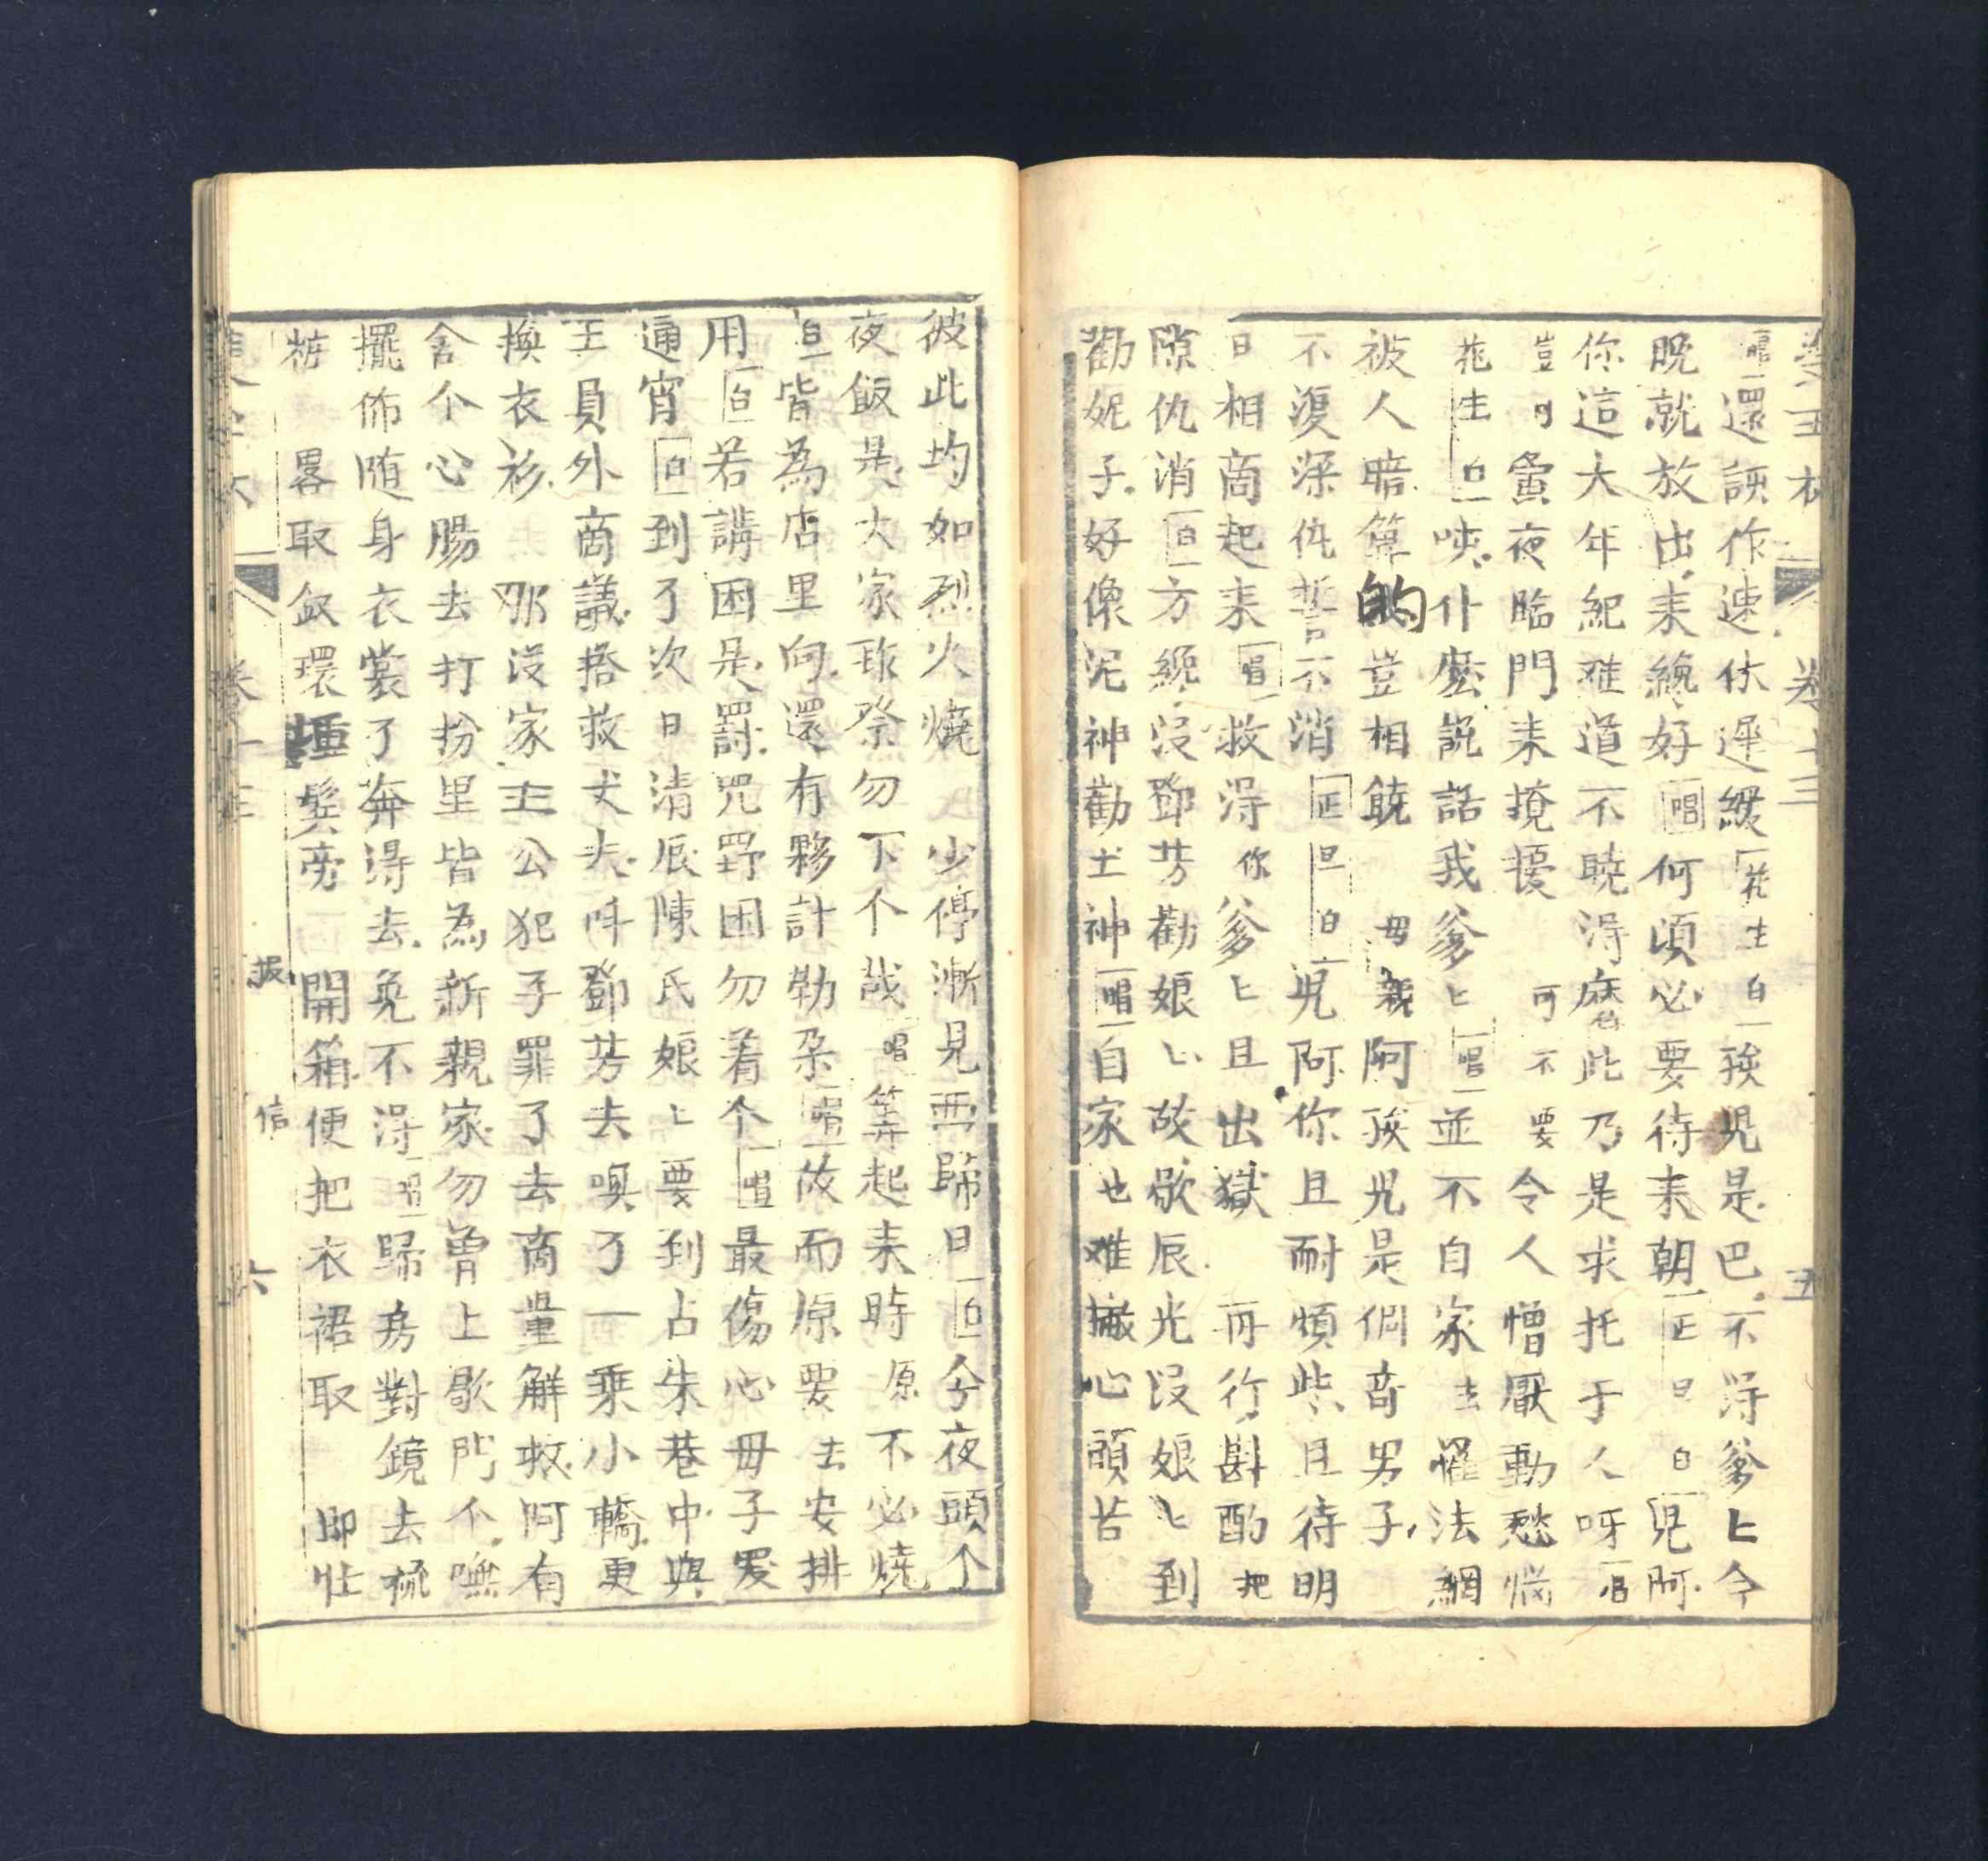 雙玉杯 卷十三 五
唱還誤作速休遲緩花生白孩児是巴不淂爹匕今
晚就放出来纔好唱何須必要待来朝正旦白児阿
你這大年紀难道不曉淂麽此乃是求托于人呀唱
豈可黉夜臨門来攪擾可不要令人憎厭動愁惱
花生白唊什麽説話我爹匕唱並不自家去罹法網
被人暗算的豈相饒毋親阿孩児是個奇男子
不復深仇誓不消正旦白児阿你且耐煩些且待明
日相商起来唱救淂你爹匕且出獄再行斟酌把
隙仇消白方纔没鄧芳勸娘匕故歇辰光没娘匕到
勸妮子好像泥神勸土神唱自家也难撇心頭苦
彼此均如烈火燒少停漸見西歸日白今夜頭个
夜飯是大家孫祭勿下个哉唱等起来時原不必燒
白皆為店里向還有夥計勒朶唱故而原要去安排
用白若講困是罰咒野困勿着个唱最傷心毋子愛
通宵白到了次日清辰陳氏娘匕要到占朱巷中與
王員外商議搭救丈夫呌鄧芳去嗅了一乘小轎更
換衣衫那没家主公犯子罪了去商量解救阿有
舍个心腸去打扮里皆為新親家勿曽上歇門个嘸
擺佈随身衣裳了奔淂去免不淂唱歸房對鏡去梳
粧畧取釵環揷鬂旁開箱便把衣裙取即壯
卷十三 報 信 六